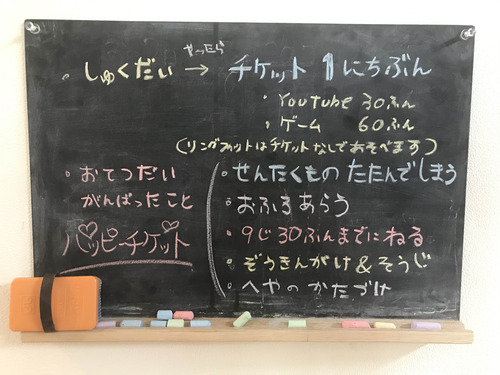 ・しゅくだい やったら → チケット 1にちぶん
・YouTube 30ぷん
・ゲーム 60ぷん
(リングフィットはチケットなしであそべます)
・おてつだい
がんばったこと
ハッピーチケット
・せんたくもの たたんでしまう
・おふろあらう
・9じ30ぷんまでにねる
・ぞうきんがけ&そうじ
・へやのかたづけ